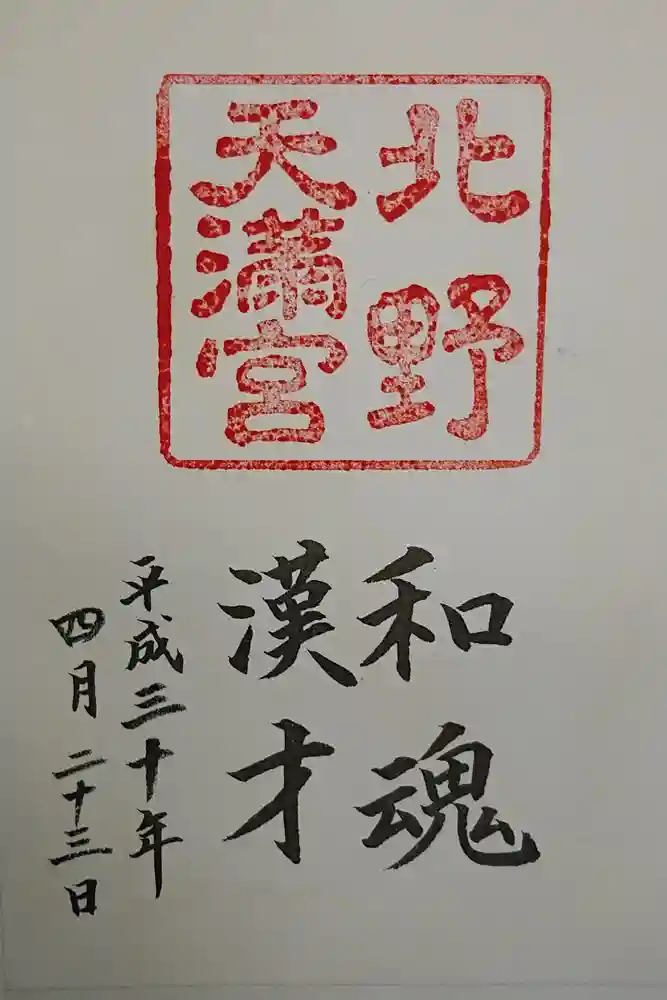 北野
天満宮
和魂
漢才
平成三十年
四月二十三日